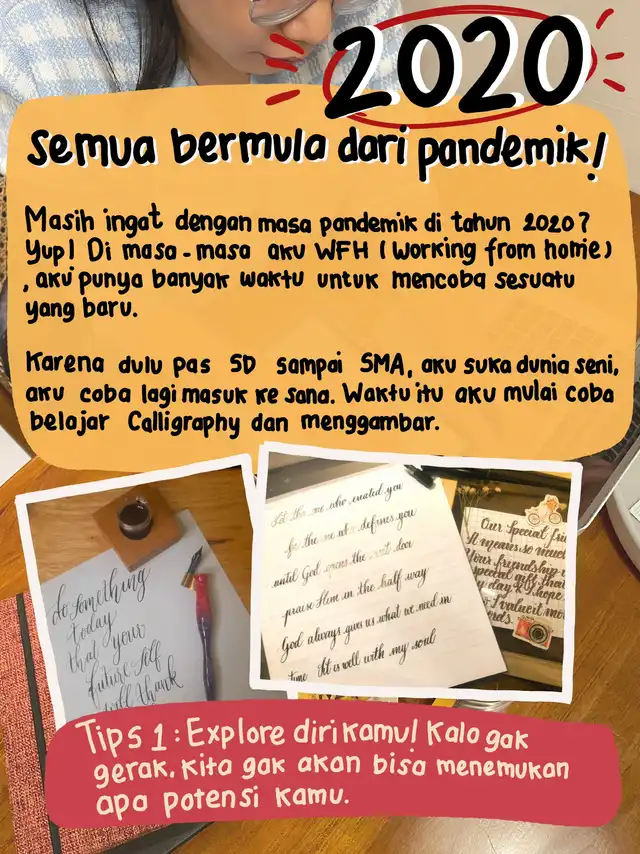 2020
semua bermula dari pandemik!
Masih ingat dengan masa pandemik di tahun 2020?
Yup! Di masa-masa aku WFH (Working from home)
, aku punya banyak waktu untuk mencoba sesuatu
yang baru.
Karena dulu pas SD sampai SMA, aku suka dunia seni,
aku coba lagi masuk ke sana. Waktu itu aku mulai coba
belajar Calligraphy dan menggambar.
do something
today
that your
future self
will thank
Let the one who created you
be the one who defines you
until God opens the next door
praise Him in the half way
God always gives us what we need in
time It is well with my soul
Our Special
It means so much
Your friendship
special gift that
day & I hope
I value it mo
Tips 1: Explore diri kamu! Kalo gak
gerak, kita gak akan bisa menemukan
apa potensi kamu.